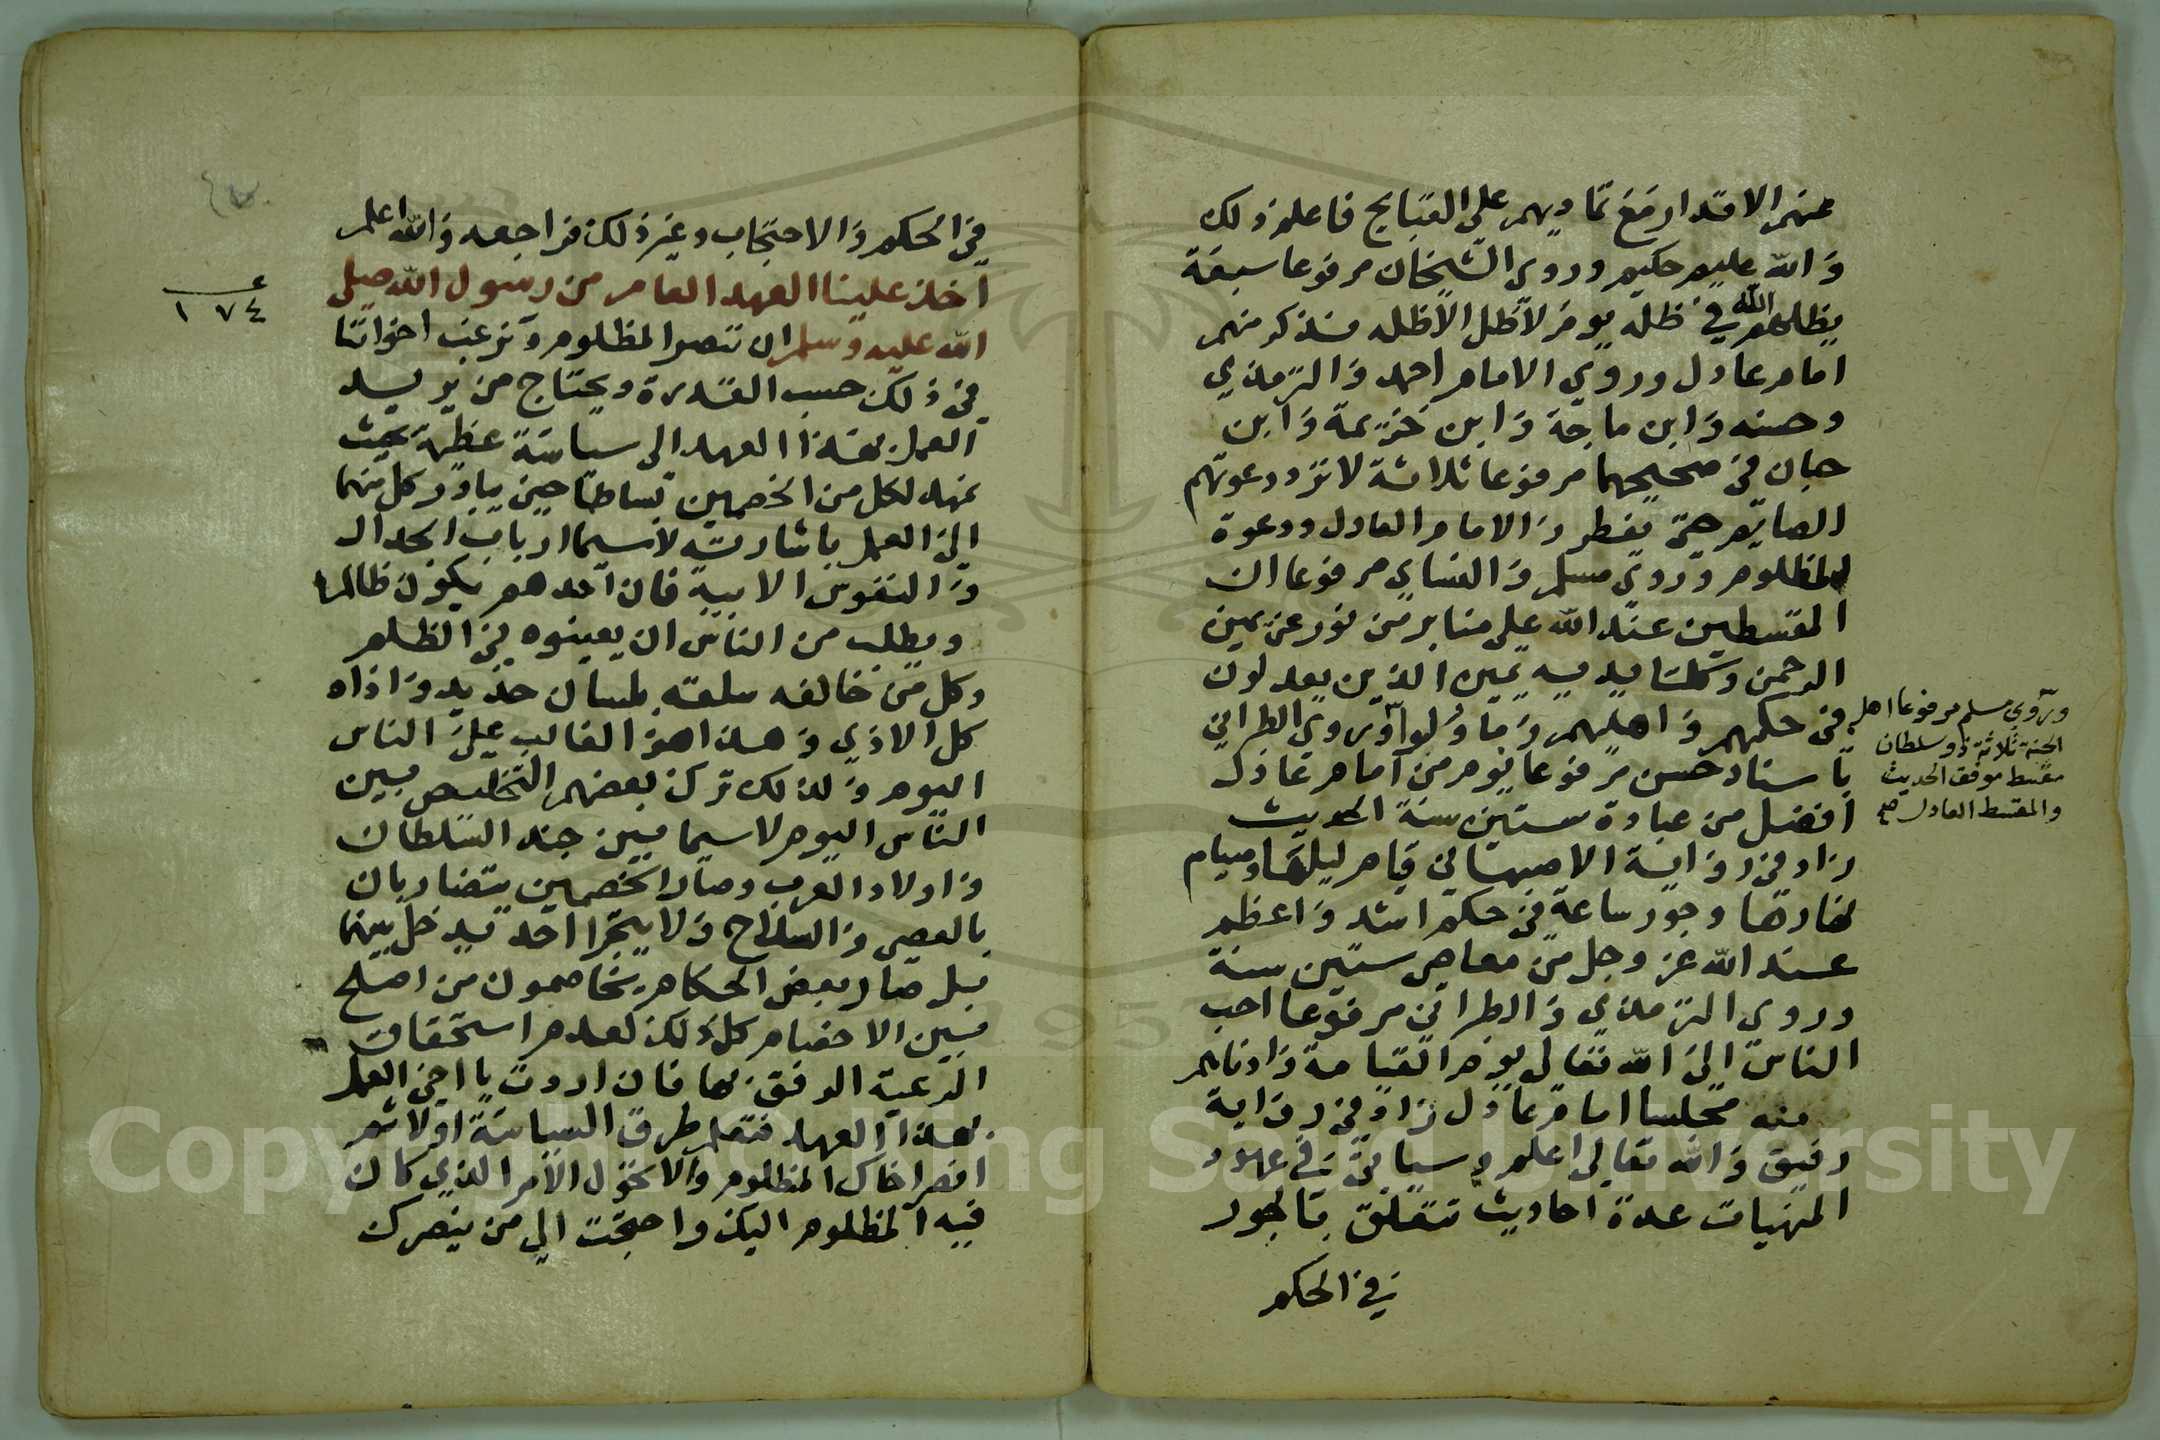 عنهم الاقدار مع تماديهم على القبايح فاعلم ذلك
والله عليم حكيم وروي الشيخان مرفوعا سبعة
يظلهم الله في ظله يوم لا ظل الا ظله فذكر منهم
امام عادل وروي الامام احمد والترمذي
وحسنه وابن ماجة وابن خزيمة وابن
حبان في صحيحهما مرفوعا ثلاثة لا ترد دعوتهم
الصايم حتى يفطر والامام العادل ودعوة
المظلوم وروي مسلم والنساي مرفوعا ان
المقسطين عند الله على منابر من نور عن يمين
الرحمن وكلتا يديه يمين الذين يعدلون
في حكمهم واهليهم وما ولوا وروي الطبراني
باسناد حسن مرفوعا يوم من امام عادل
افضل من عبادة ستين سنة الحديث
زاد في رواية الاصبهاني قيام ليلها وصيام
نهارها وجور ساعة في حكم اشد واعظم
عند الله عز وجل من معاصي ستين سنة
وروي الترمذي والطبراني مرفوعا احب
الناس الى الله تعالى يوم القيامة وادناهم
منه مجلسا امام عادل زاد في رواية
رفيق والله تعالى اعلم وسياتي في عهود
المنهيات عدة احاديث تتعلق بالجور
في الحكم
وروي مسلم مرفوعا اهل
الجنة ثلاثة ذو سلطان
مقسط موفق الحديث
والمقسط العادل صح
في الحكم والاحتجاب وغير ذلك فراجعه والله اعلم
اخذ علينا العهد العام من رسول الله صلى
الله عليه وسلم ان ننصر المظلوم ونرغب اخواننا
في ذلك حسب القدرة ويحتاج من يريد
العمل بهذا العهد الى سياسة عظيمة بحيث
يمهد لكل من الخصمين بساطا حين يبادر كل منهما
الى العمل باشارته لا سيما ارباب الجدال
والنفوس الابية فان احدهم يكون ظالما
ويطلب من الناس ان يعينوه في الظلم
وكل من خالفه سلقه بلسان حديد واذاه
كل الاذي وهذا هو الغالب على الناس
اليوم ولذلك ترك بعضهم التخليص بين
الناس اليوم لا سيما بين جند السلطان
واولاد العرب وصار الخصمين يتضاربان
بالعصي والسلاح ولا يتجرا احد يدخل بينهما
بل صار بعض الحكام يخاصمون من اصلح
بين الاخصام كل ذلك لعدم استحقاق
الرعية الرفق بها فان اردت يا اخي العمل
بهذا العهد فتعلم طرق السياسة اولا ثم
انصر اخاك المظلوم والا تحول الامر الذي كان
فيه المظلوم اليك واحتجت الى من ينصرك
ع
١٧٤